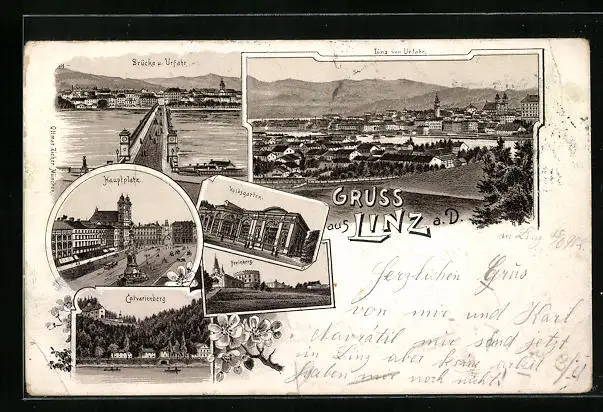 Brücke u. Urfahr.
Linz von Urfahr.
Ottmar Zieher München
Hauptplatz.
Volksgarten.
Freinberg
Calvarienberg
GRUSS
aus LINZ a. D.
in Linz
Herzlichen Grus
von mir und Karl
Navrátil mir sind jetzt
in Linz aber keine arbeit
haben mir noch nicht